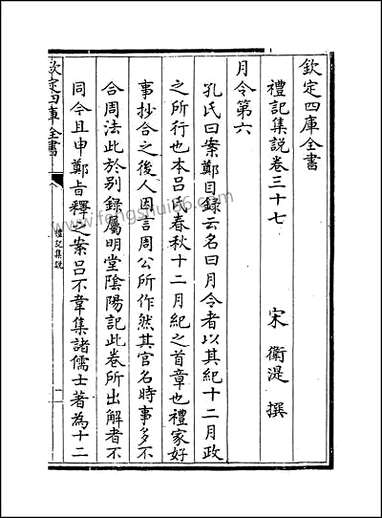 欽定四庫全書
禮記集說卷三十七
宋 衛湜 撰
月令第六
孔氏曰案鄭目録云名曰月令者以其紀十二月政
之所行也本吕氏春秋十二月紀之首章也禮家好
事抄合之後人因言周公所作然其官名時事多不
合周法此於别録屬明堂隂陽記此卷所出解者不
同今且申鄭㫖釋之案吕不韋集諸儒士著為十二
欽定四庫全書
禮記集說
一